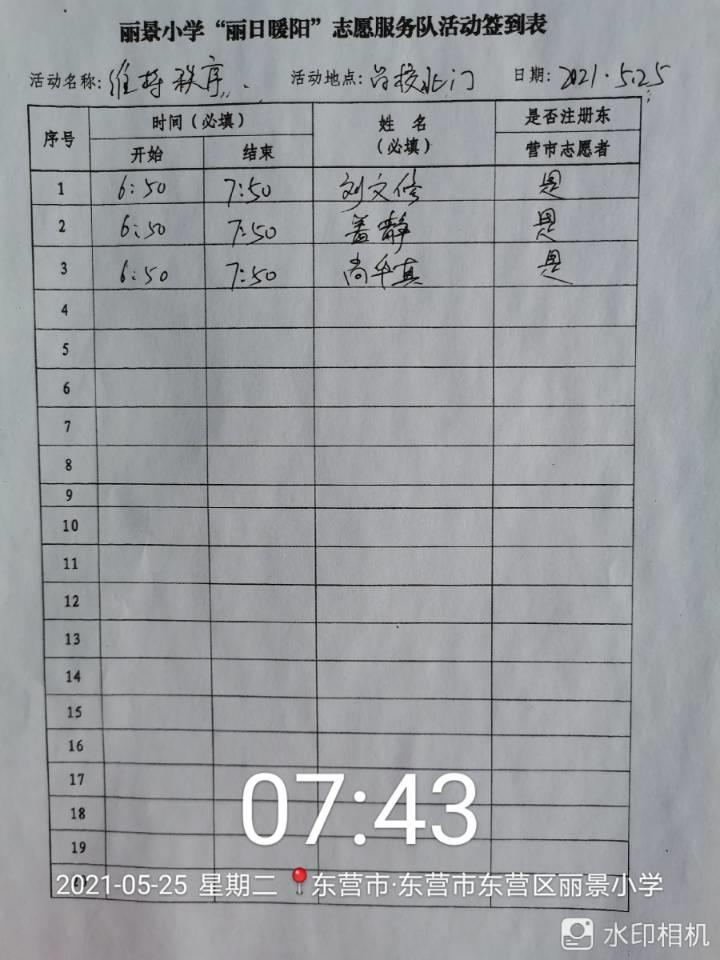 丽景小学“丽日暖阳”志愿服务队活动签到表
活动名称:维持秩序 活动地点:学校北门 日期:2021.5.25
序号 时间(必填) 姓名(必填) 是否注册东营市志愿者
开始 结束
1 6:50 7:50 刘文修 是
2 6:50 7:50 盖静 是
3 6:50 7:50 尚华真 是
4
5
6
7
8
9
10
11
12
13
14
15
16
17
18
19
07:43
2021-05-25 星期二 东营市·东营市东营区丽景小学
水印相机